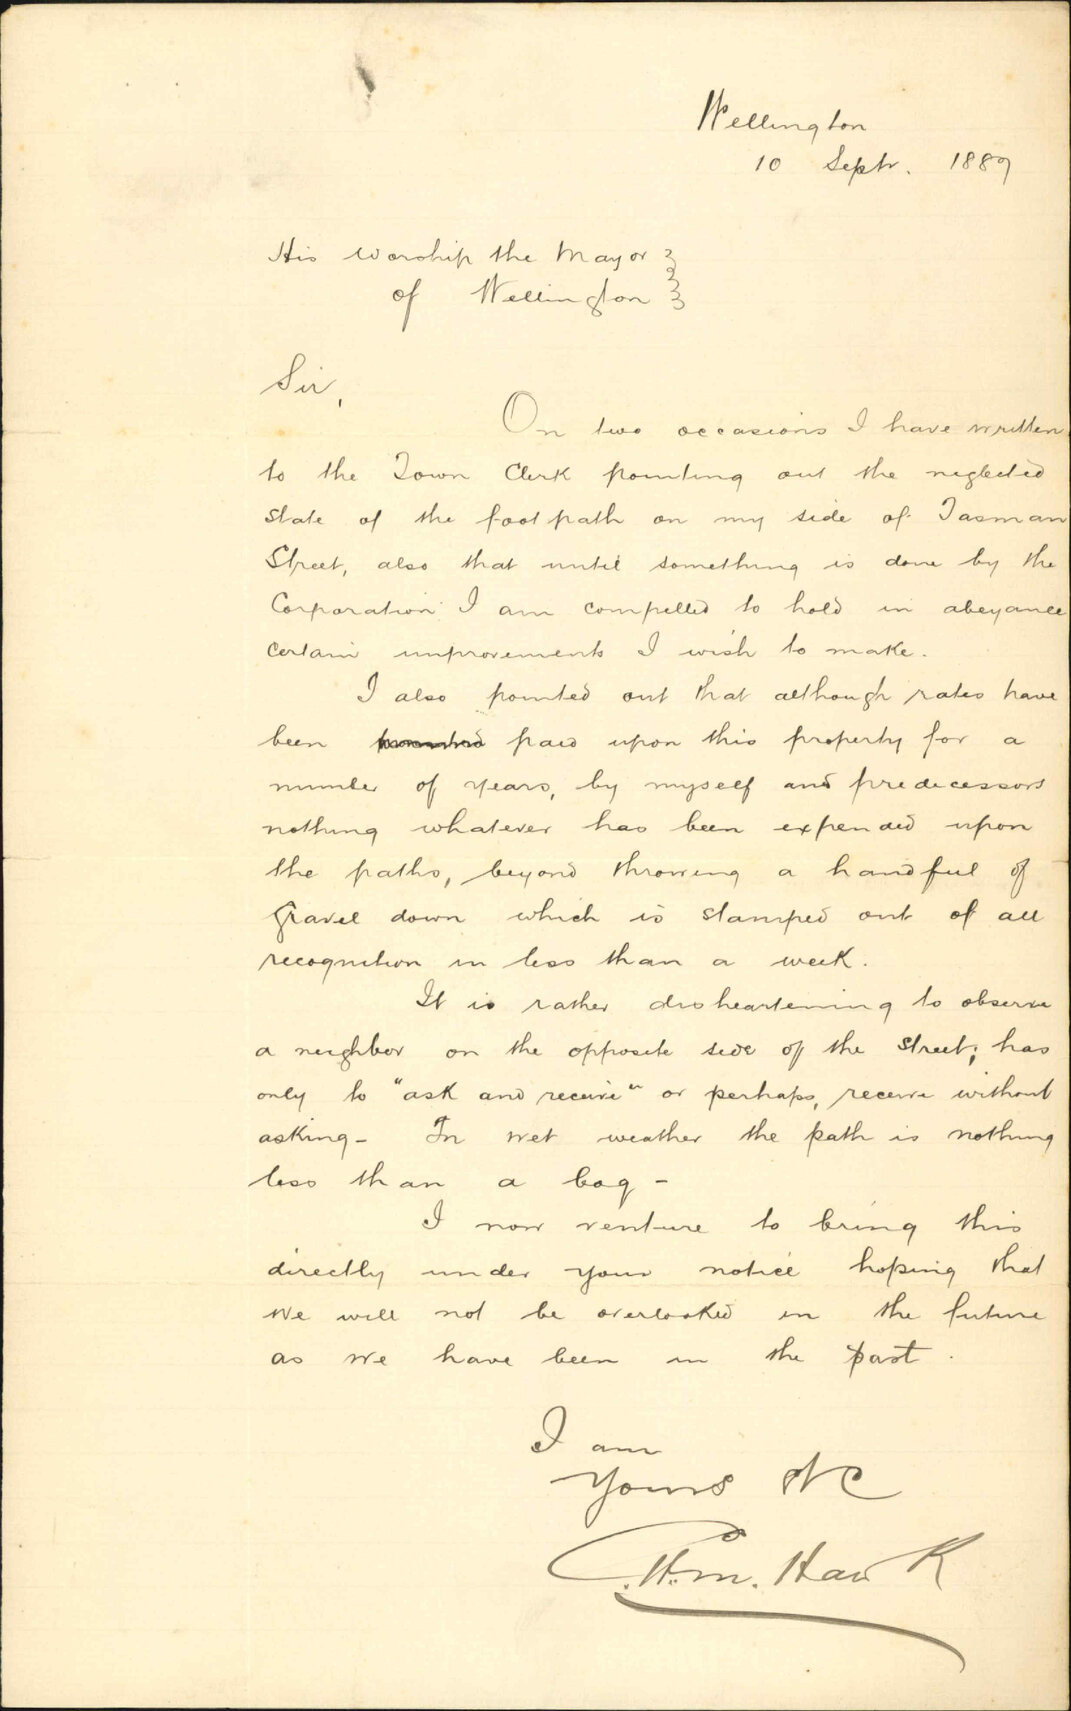 Wellington
10 Septr. 1889
His Worship the Mayor
of Wellington
Sir,
On two occasions I have written
to the Town Clerk pointing out the neglected
state of the foot path on my side of Tasman
Street, also that until something is done by the
Corporation I am compelled to hold in abeyance
certain improvements I wish to make.
I also pointed out that although rates have
been paid upon this property for a
number of years, by myself and predecessors
nothing whatever has been expended upon
the paths, beyond throwing a handful of
gravel down which is stamped out of all
recognition in less than a week.
It is rather disheartening to observe
a neighbor on the opposite side of the street; has
only to "ask and receive" or perhaps, receive without
asking - In wet weather the path is nothing
less than a bog -
I now venture to bring this
directly under your notice hoping that
we will not be overlooked in the future
as we have been in the past.
I am
Yours
Wm. Hawk